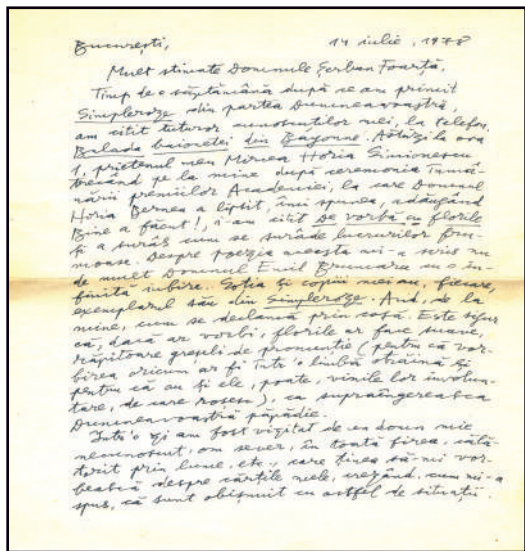 București, 14 iulie, 1978
Mult stimate Domnule Șerban Foarță,
Timp de o săptămână după ce am primit
Simpleroze din partea Dumneavoastră,
am citit tuturor cunoscuților mei, la telefon,
Balada baionetei din Bayonne. Astăzi la ora
1, prietenul meu Mircea Horia Simionescu
trecând pe la mine după ceremonia înmâ-
nării premiilor Academiei, la care Domnul
Horia Bernea a lipsit, îmi spunea, adăugând
Bine a făcut!, i-am citit De vorbă cu florile
Și a surâs cum se surâde lucrurilor fru-
moase. Despre poezia aceasta mi-a scris nu
de mult Domnul Emil Brumaru cu o in-
finită iubire. Soția și copiii mei au, fiecare,
exemplarul său din Simpleroze. Aud, de la
mine, cum se declamă prin casă. Este sigur
că, dacă ar vorbi, florile ar face suave,
răpitoare greșeli de pronunție (pentru că vor-
birea oricum ar fi într'o limbă străină și
pentru că au și ele, poate, vinile lor involun-
tare, de care roșesc), ca supraîngereasca
Dumneavoastră păpădie.
Într'o zi am fost vizitat de un domn mie
necunoscut, om sever, în toată firea, călă-
torit prin lume, etc., care ținea să-mi vor-
bească despre cărțile mele, crezând, cum mi-a
spus, că sunt obișnuit cu astfel de situații.